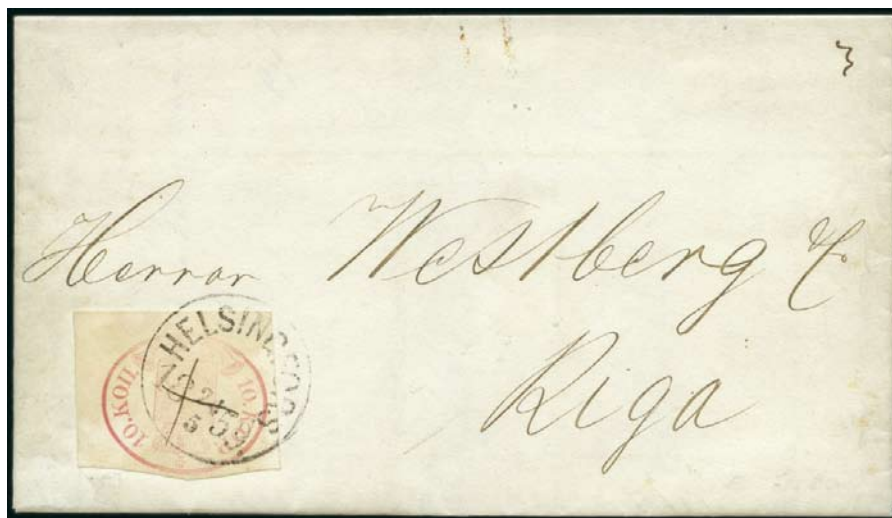 Herrar Westberg &
Riga
HELSINGFORS
10. КОП. 10. K